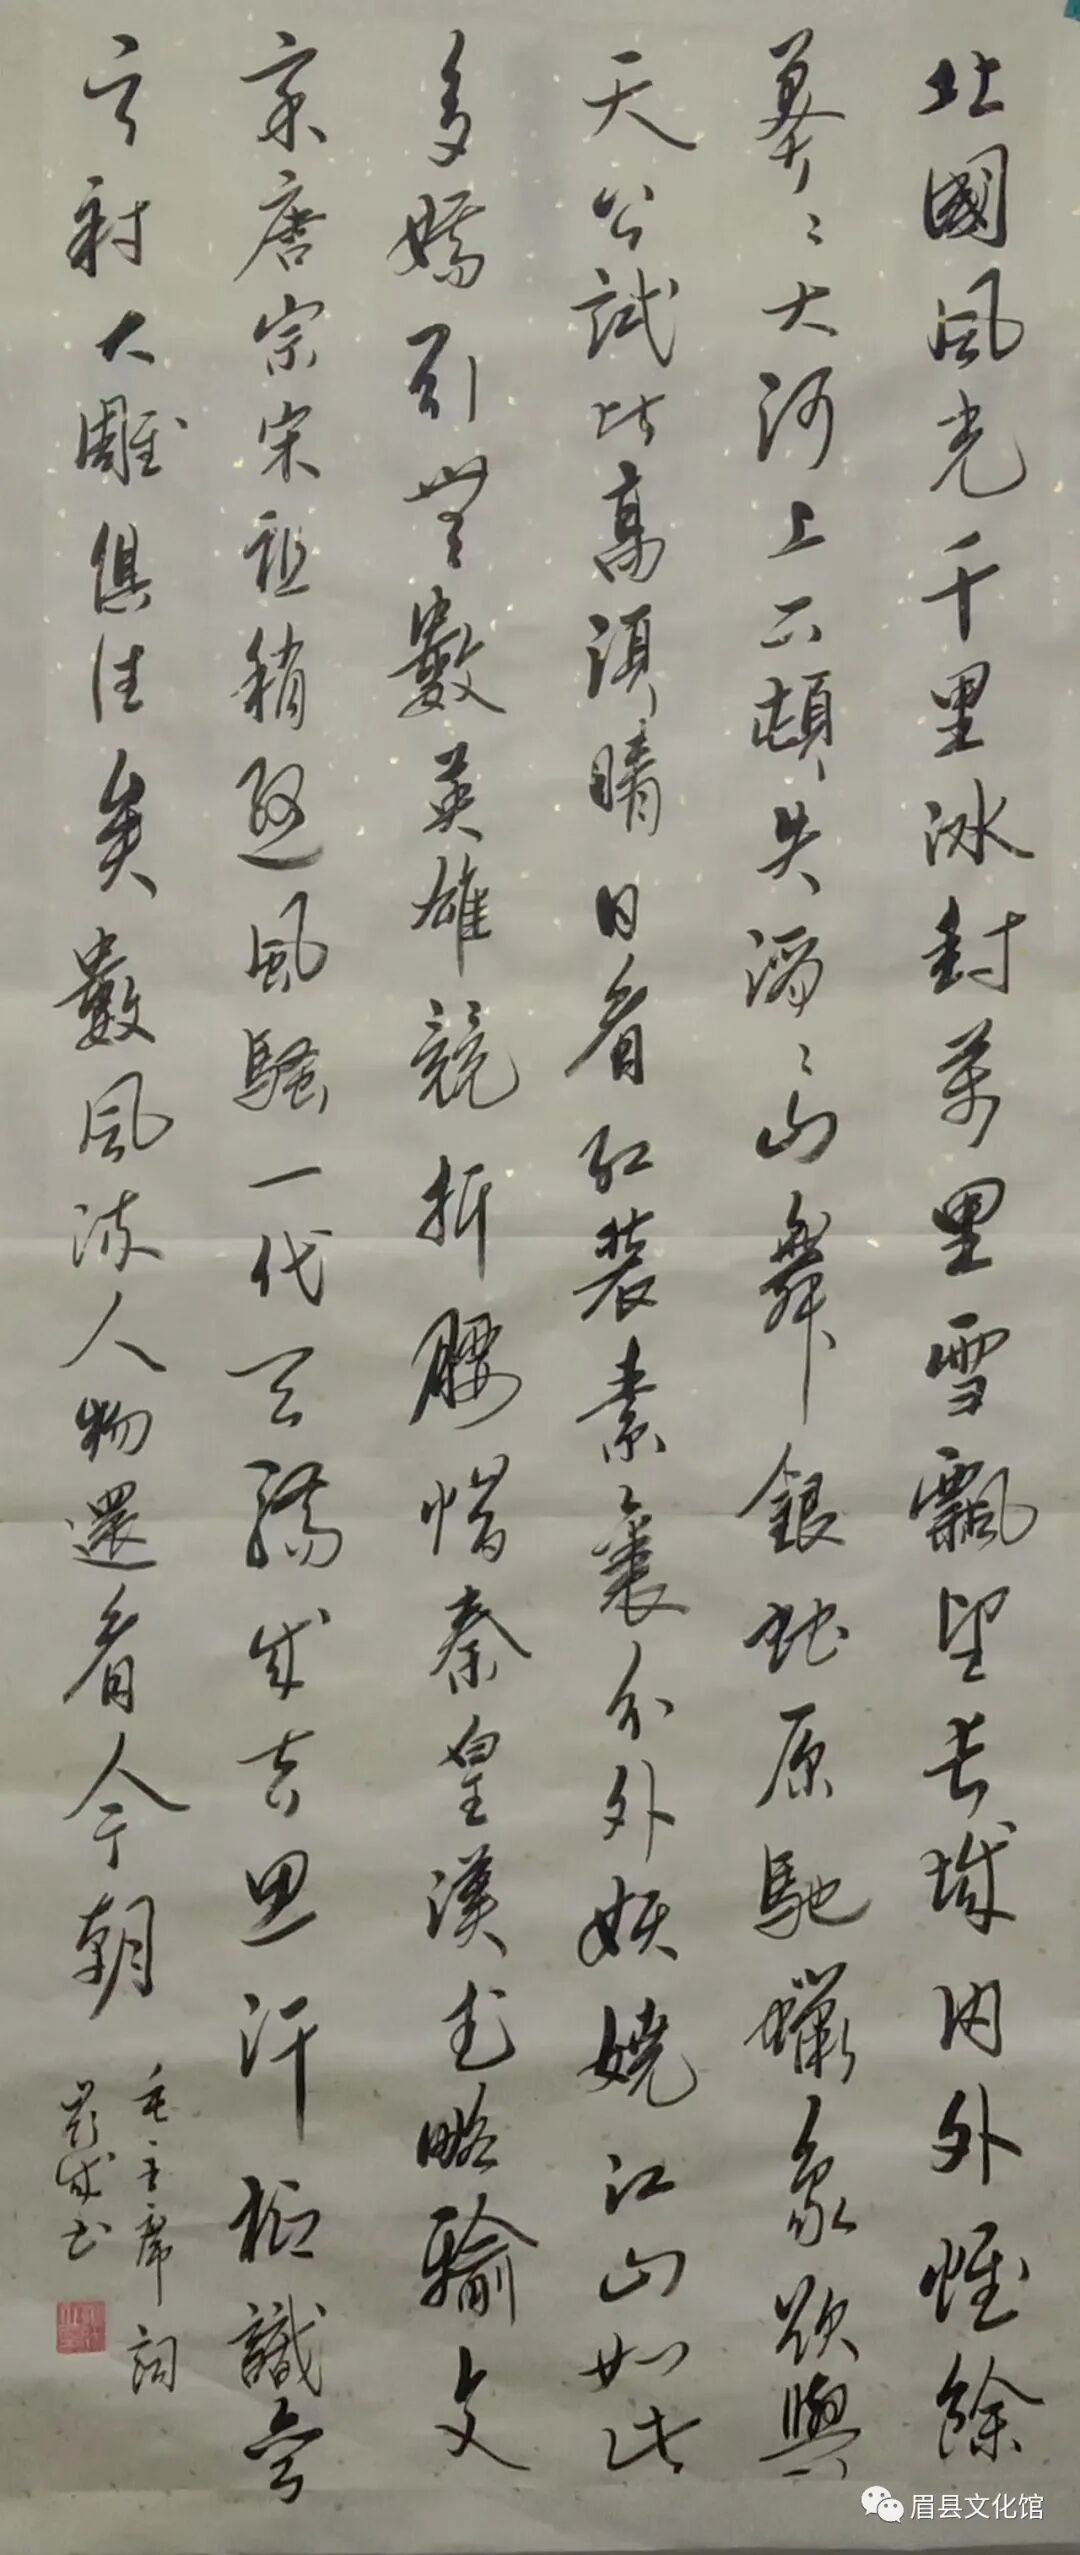 北國風光千里冰封萬里雪飄望長城内外惟餘
莽〻大河上下頓失滔〻山舞銀蛇原馳蠟象欲與
天公試比高須晴日看紅裝素裹分外妖嬈江山如此
多嬌引無數英雄競折腰惜秦皇漢武略輸文
采唐宗宋祖稍遜風騷一代天驕成吉思汗祗識彎
弓射大雕俱往矣數風流人物還看今朝
毛主席詞
成书
眉县文化馆